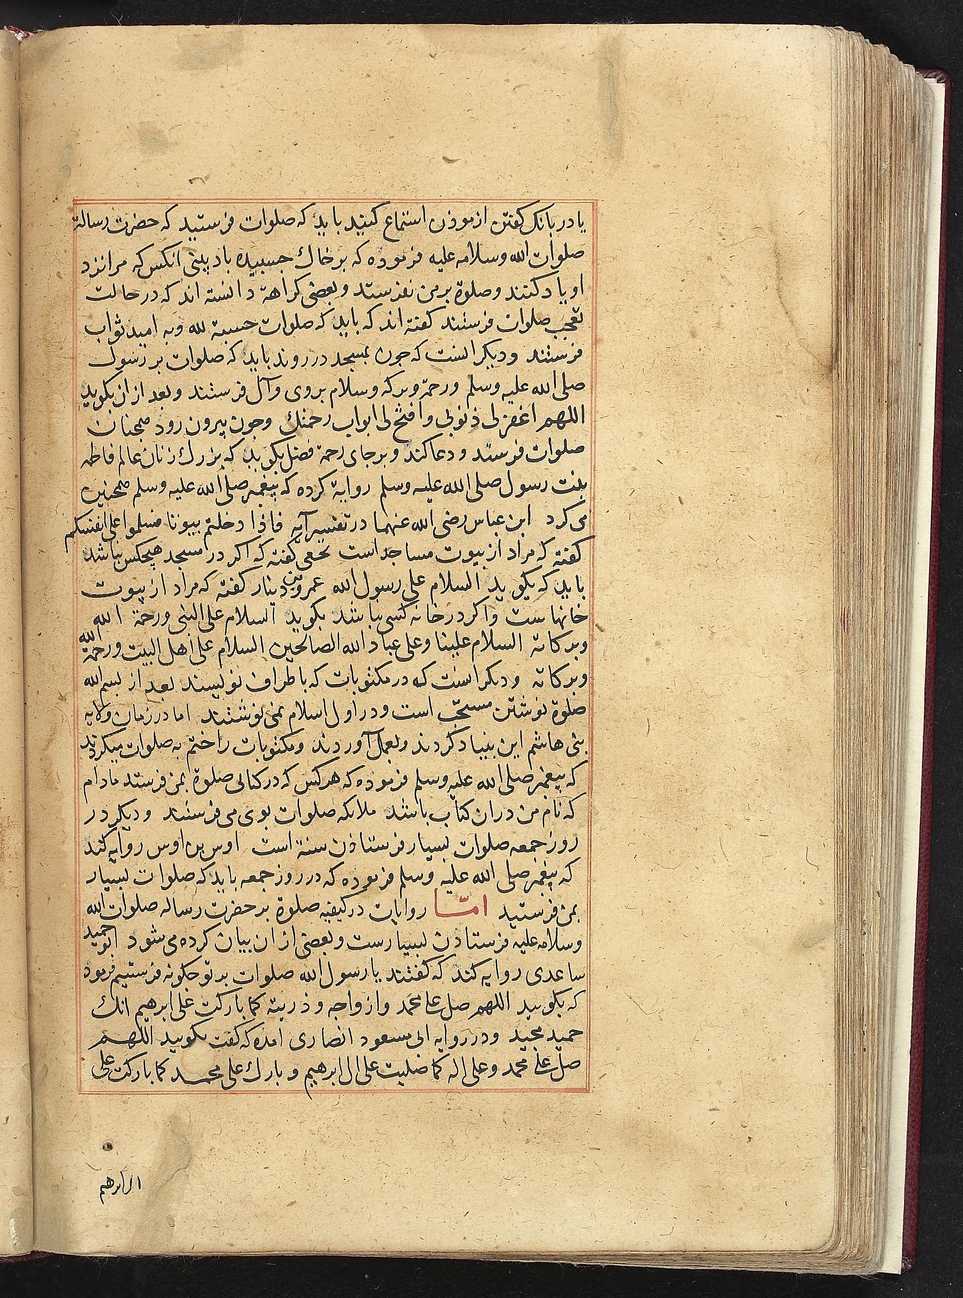 یا در بانک گفتن از موذن استماع کنید باید که صلوات فرستید که حضرت رسالة
صلوات الله وسلامه علیه فرموده که بر خاک چسبیده باد بینی انکس که مرا نزد
او یاد کنند و صلوة بر من نفرستد و بعضی کراهة دانسته اند که در حالت
تعجب صلوات فرستند گفته اند که باید که صلوات حسبة لله و به امید ثواب
فرستند و دیکر انست که چون بمسجد در روند باید که صلوات بر رسول
صلی الله علیه وسلم ورحمة وبرکه وسلام بر وی وآل فرستند و بعد ازان بکوید
اللهم اغفر لی ذنوبی وافتح لی ابواب رحمتک وچون بیرون رود همچنان
صلوات فرستد و دعا کند و بر جای رحمة فضل بکوید که بزرک زنان عالم فاطمه
بنت رسول صلی الله علیه وسلم روایة کرده که پیغمبر صلی الله علیه وسلم همچنین
می کرد ابن عباس رضی الله عنهما در تفسیر آیه فاذا دخلتم بیوتا فسلموا علی انفسکم
گفته که مراد از بیوت مساجد است نخعی گفته که اکر در مسجد هیچکس نباشد
باید که بکوید السلام علی رسول الله عمرو بن دینار گفته که مراد از بیوت
خانهاست واکر در خانه کسی نباشد بکوید السلام علی النبی ورحمة الله
وبرکاته السلام علینا وعلی عباد الله الصالحین السلام علی اهل البیت ورحمة الله
وبرکاته ودیکر انست که در مکتوبات که باطراف نویسند بعد از بسم الله
صلوة نوشتن مستحب است ودر اول اسلام نمی نوشتند اما در زمان ولایه
بنی هاشم این بنیاد کردند وبعمل آوردند ومکتوبات را ختم به صلوات میکردند
که پیغمبر صلی الله علیه وسلم فرموده که هر کس که در کتابی صلوة بمن فرستد مادام
که نام من در ان کتاب باشد ملائکه صلوات بوی می فرستند ودیکر در
روز جمعه صلوات بسیار فرستادن سنة است اوس بن اوس روایه کند
که پیغمبر صلی الله علیه وسلم فرموده که در روز جمعه باید که صلوات بسیار
بمن فرستید امّا روایات در کیفیه صلوة بر حضرت رساله صلوات الله
وسلامه علیه فرستادن بسیارست وبعضی از ان بیان کرده می شود ابو حمید
ساعدی روایه کند که گفتند یا رسول الله صلوات بر تو چکونه فرستیم فرمود
که بکویید اللهم صل علی محمد وازواجه وذریته کما بارکت علی ابرهیم انک
حمید مجید ودر روایه ابی مسعود انصاری امده که گفت بکویید اللهم
صل علی محمد وعلی اله کما صلیت علی ال ابرهیم وبارک علی محمد کما بارکت علی
ال ابرهیم